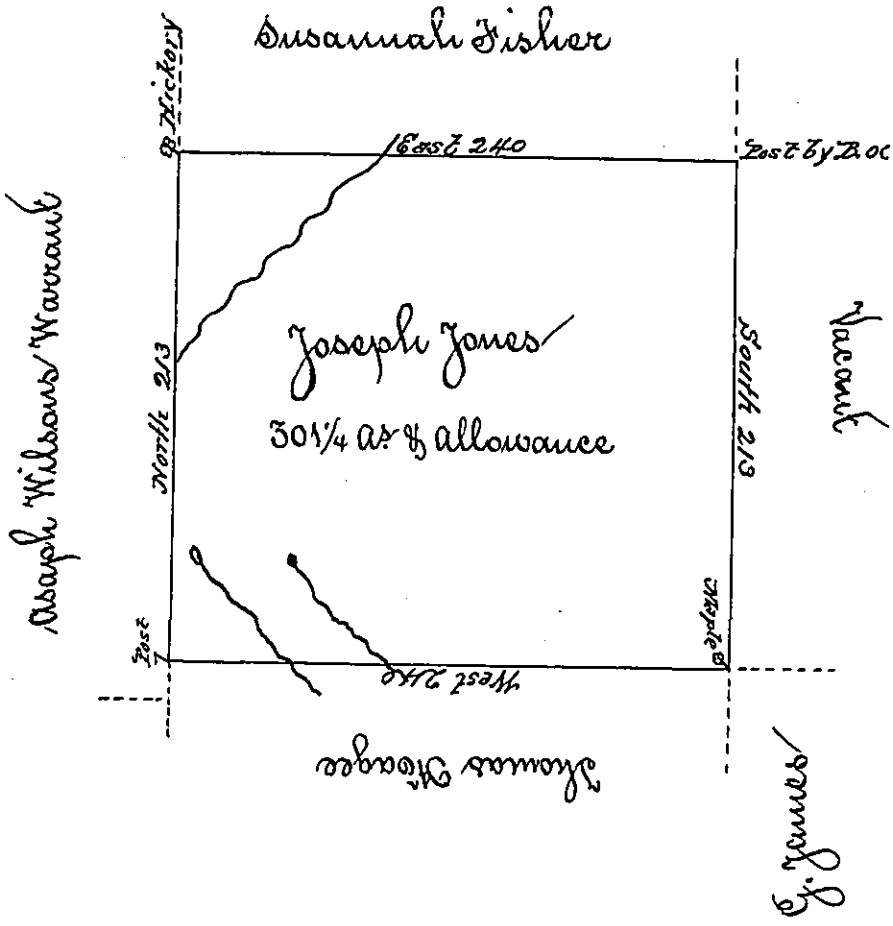 Susannah Fisher
B Hickory
East 240
Post by B. oc
Asaph Wilsons Warrant
North 213
Joseph Jones
301 1/4 As & Allowance
South 213
Vacant
Post
Maple
West 240
Thomas
G. James